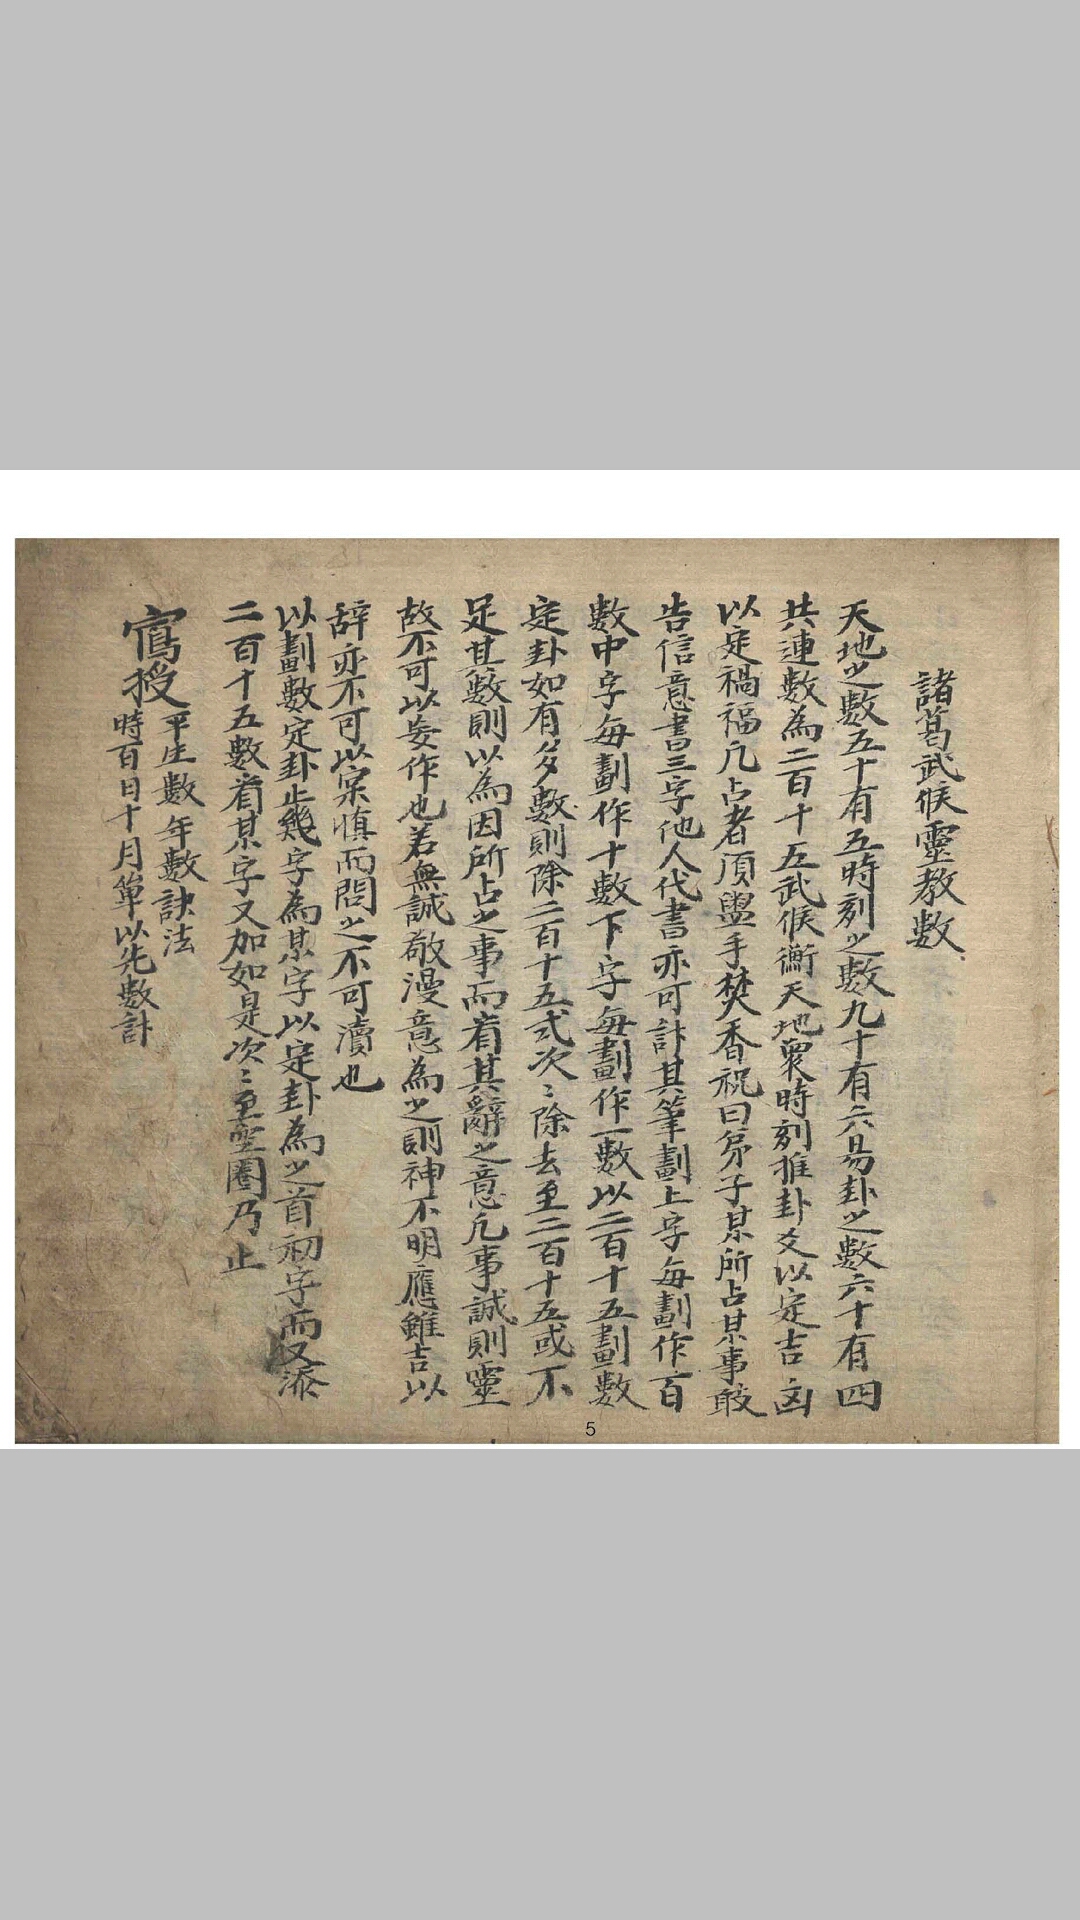 諸葛武侯靈教數
天地之數五十有五時刻之數九十有六易卦之數六十有四
共連數為二百十五武侯衡天地衆時刻推卦爻以定吉凶
以定禍福凡占者須盥手焚香祝曰弟子某所占某事敢
告信意書三字他人代書亦可計其筆劃上字每劃作百
數中字每劃作十數下字每劃作一數以二百十五劃數
定卦如有多數則除二百十五式次〻除去至二百十五或不
足其數則以為因所占之事而看其辭之意凡事誠則靈
故不可以妄作也若無誠敬漫意為之則神不明應雖吉以
辞亦不可以 慎而問之不可瀆也
以劃數定卦止幾字為某字以定卦為之首初字而又添
二百十五數看某字又加如是次〻至空圈乃止
寫授
平生數年數訣法
時百日十月單以先數計
5